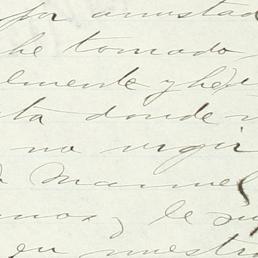 por amistad
he tomado
lmente y hed
ta donde
no urgir
Manuel
mos, y le su
en nuestro